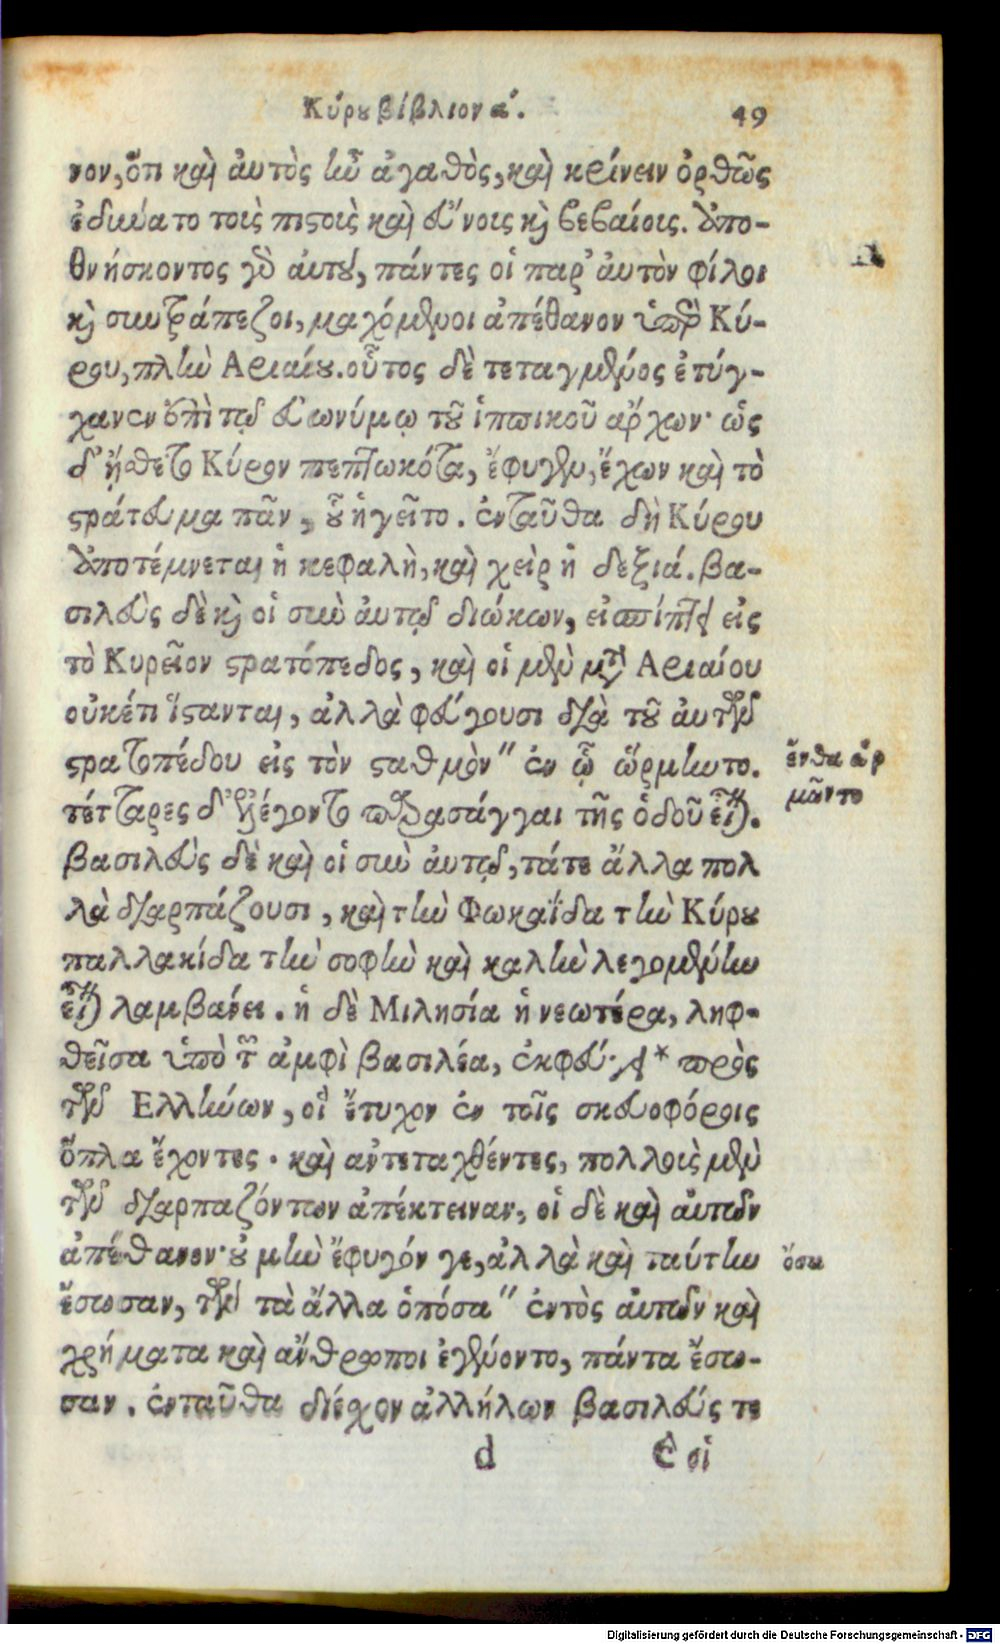 Κύρου βίβλιον α΄. 49
νον, ὅτι καὶ ἀυτὸς ἦν ἀγαθὸς, καὶ κρίνειν ὀρθῶς
ἐδύνατο τοὶς πιστοὶς καὶ εὔνοις κὶ βεβαίοις. ἀπο-
θνήσκοντος γὸ ἀυτοῦ, πάντες οἱ παρ' ἀυτὸν φίλοι
κὶ συντράπεζοι, μαχόμενοι ἀπέθανον ὑπὲρ Κύ-
ρου, πλὴν Αριαίου. οὗτος δὲ τεταγμένος ἐτύγ-
χανεν ἐπὶ τῷ εὐωνύμῳ τοῦ ἱππικοῦ ἄρχων· ὡς
δ' ᾔσθετο Κύρον πεπτωκότα, ἔφυγεν, ἔχων καὶ τὸ
στράτευμα πᾶν, οὗ ἡγεῖτο. ἐνταῦθα δὴ Κύρου
ἀποτέμνεται ἡ κεφαλὴ, καὶ χεὶρ ἡ δεξιά. βα-
σιλεὺς δὲ κὶ οἱ σὺν ἀυτῷ διώκων, εἰσπίπτει εἰς
τὸ Κυρεῖον στρατόπεδος, καὶ οἱ μὲν μετὰ Αριαίου
οὐκέτι ἵστανται, ἀλλὰ φεύγουσι διὰ τοῦ ἀυτῶν
στρατοπέδου εἰς τὸν σταθμὸν" ἐν ᾧ ὥρμηντο.
ἔνθα ὥρ
μῶντο
τέτταρες δ' ἐλέγοντο παρασάγγαι τῆς ὁδοῦ εἶναι.
βασιλεὺς δὲ καὶ οἱ σὺν ἀυτῷ, τάτε ἄλλα πολ
λὰ διαρπάζουσι, καὶ τὴν Φωκαΐδα τὴν Κύρου
παλλακίδα τὴν σοφὴν καὶ καλὴν λεγομένην
εἶναι λαμβάνει. ἡ δὲ Μιλησία ἡ νεωτέρα, ληφ-
θεῖσα ὑπὸ τῶν ἀμφὶ βασιλέα, ἐκφεύγει* πρὸς
τῶν Ελλήνων, οἳ ἔτυχον ἐν τοῖς σκευοφόροις
ὅπλα ἔχοντες. καὶ ἀντεταχθέντες, πολλοὶς μὲν
τῶν διαρπαζόντων ἀπέκτειναν, οἱ δὲ καὶ ἀυτῶν
ἀπέθανον· οὐ μὴν ἔφυγόν γε, ἀλλὰ καὶ ταύτην
ἔσωσαν, τῶν τὰ ἄλλα ὁπόσα" ἐντὸς ἀυτῶν καὶ
χρήματα καὶ ἄνθρωποι ἐγένοντο, πάντα ἔσω-
σαν. ἐνταῦθα διέχον ἀλλήλων βασιλεύς τε
d οἱ
Digitalisierung gefördert durch die Deutsche Forschungsgemeinschaft - DFG